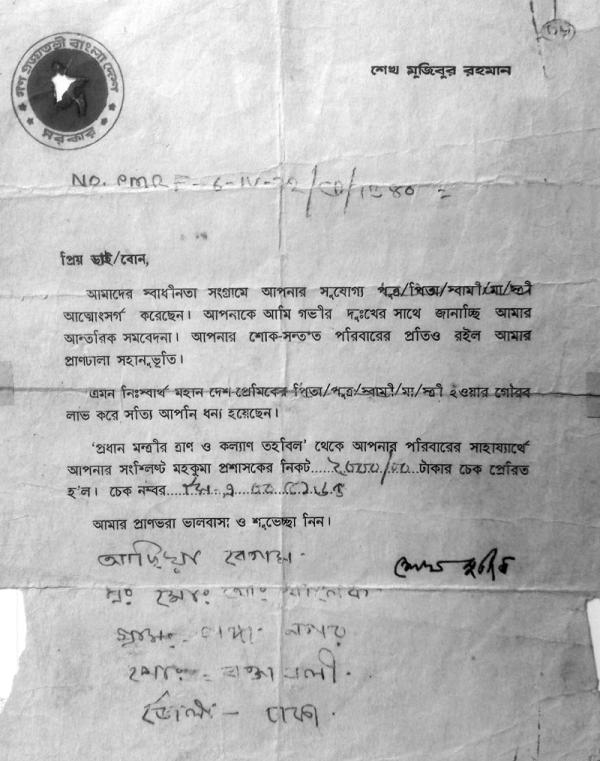 গণ প্রজাতন্ত্রী বাংলা দেশ
সরকার
শেখ মুজিবুর রহমান
NO. PMRF-6-IV-72/CD/1540
প্রিয় ভাই/বোন,
আমাদের স্বাধীনতা সংগ্রামে আপনার সুযোগ্য পুত্র/পিতা/স্বামী/মা/স্ত্রী
আত্মোৎসর্গ করেছেন। আপনাকে আমি গভীর দুঃখের সাথে জানাচ্ছি আমার
আন্তরিক সমবেদনা। আপনার শোক-সন্তপ্ত পরিবারের প্রতিও রইল আমার
প্রাণঢালা সহানুভূতি।
এমন নিঃস্বার্থ মহান দেশ-প্রেমিকের পিতা/পুত্র/স্বামী/মা/স্ত্রী হওয়ার গৌরব
লাভ করে সত্যি আপনি ধন্য হয়েছেন।
‘প্রধান মন্ত্রীর ত্রাণ ও কল্যাণ তহবিল’ থেকে আপনার পরিবারের সাহায্যার্থে
আপনার সংশ্লিষ্ট মহকুমা প্রশাসকের নিকট....২০০০/০০..টাকার চেক প্রেরিত
হ'ল। চেক নম্বর....
আমার প্রাণভরা ভালবাসা ও শুভেচ্ছা নিন।
বেগম
শেখ মুজিব
গ্রাম-
পোঃ-
জেলা - ঢাকা